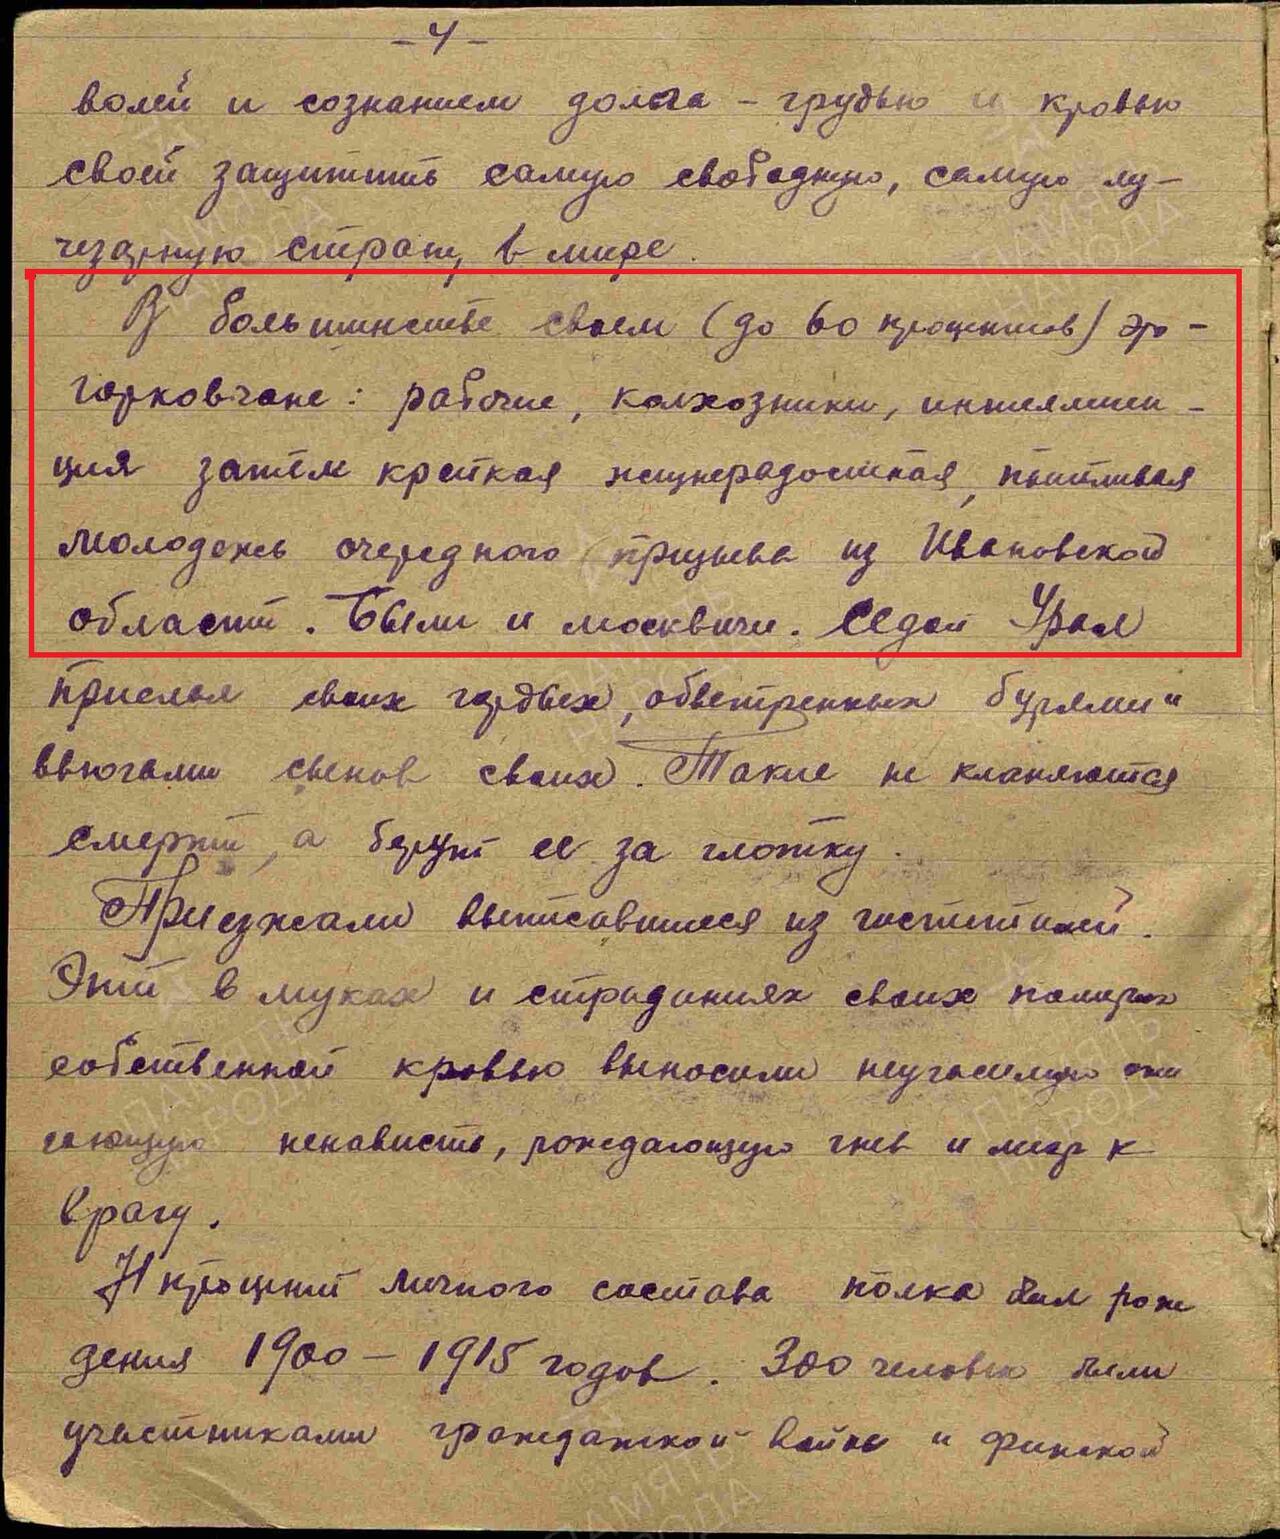 -4-
волей и сознанием долга - грудью и кровью
своей защитить самую свободную, самую лу-
чезарную страну в мире.
В большинстве своем (до 60 процентов) это -
горьковчане: рабочие, колхозники, интеллиген-
ция затем крепкая жизнерадостная, пытливая
молодежь очередного призыва из Ивановской
области. Были и москвичи. Седой Урал
прислал своих гордых, обветренных бурями и
вьюгами сынов своих. Такие не кланяются
смерти, а берут ее за глотку.
Приезжали выписавшиеся из госпиталей.
Эти в муках и страданиях своих
собственной кровью выносили неугасимую
ненависть, рождающую гнев и к
врагу.
процент личного состава полка был рож
дения 1900-1915 годов. 300 человек были
участниками гражданской войны и финской
ПАМЯТЬ НАРОДА